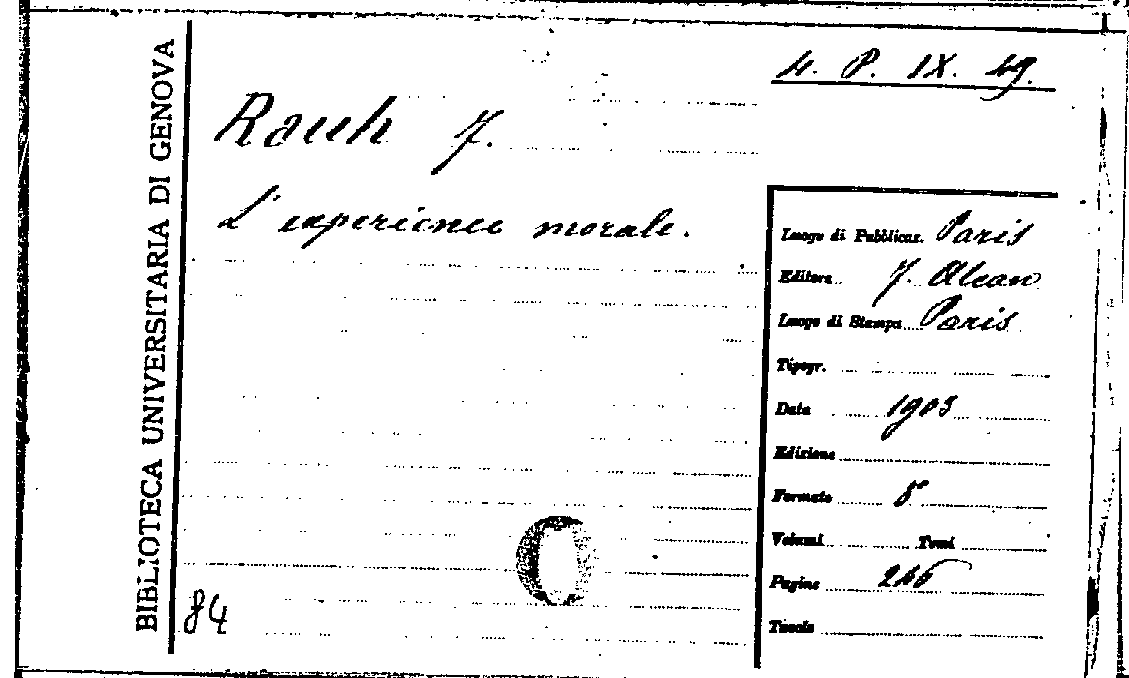 BIBLIOTECA UNIVERSITARIA DI GENOVA
4. P. IX. 49.
Rauh F.
L'experience morale.
Luogo di Pubblicaz. Paris
Editore F. Alcan
Luogo di Stampa Paris
Tipogr.
Data 1903
Edizione
Formato 8°
Volumi Tomi
Pagine 246
Tavole
84